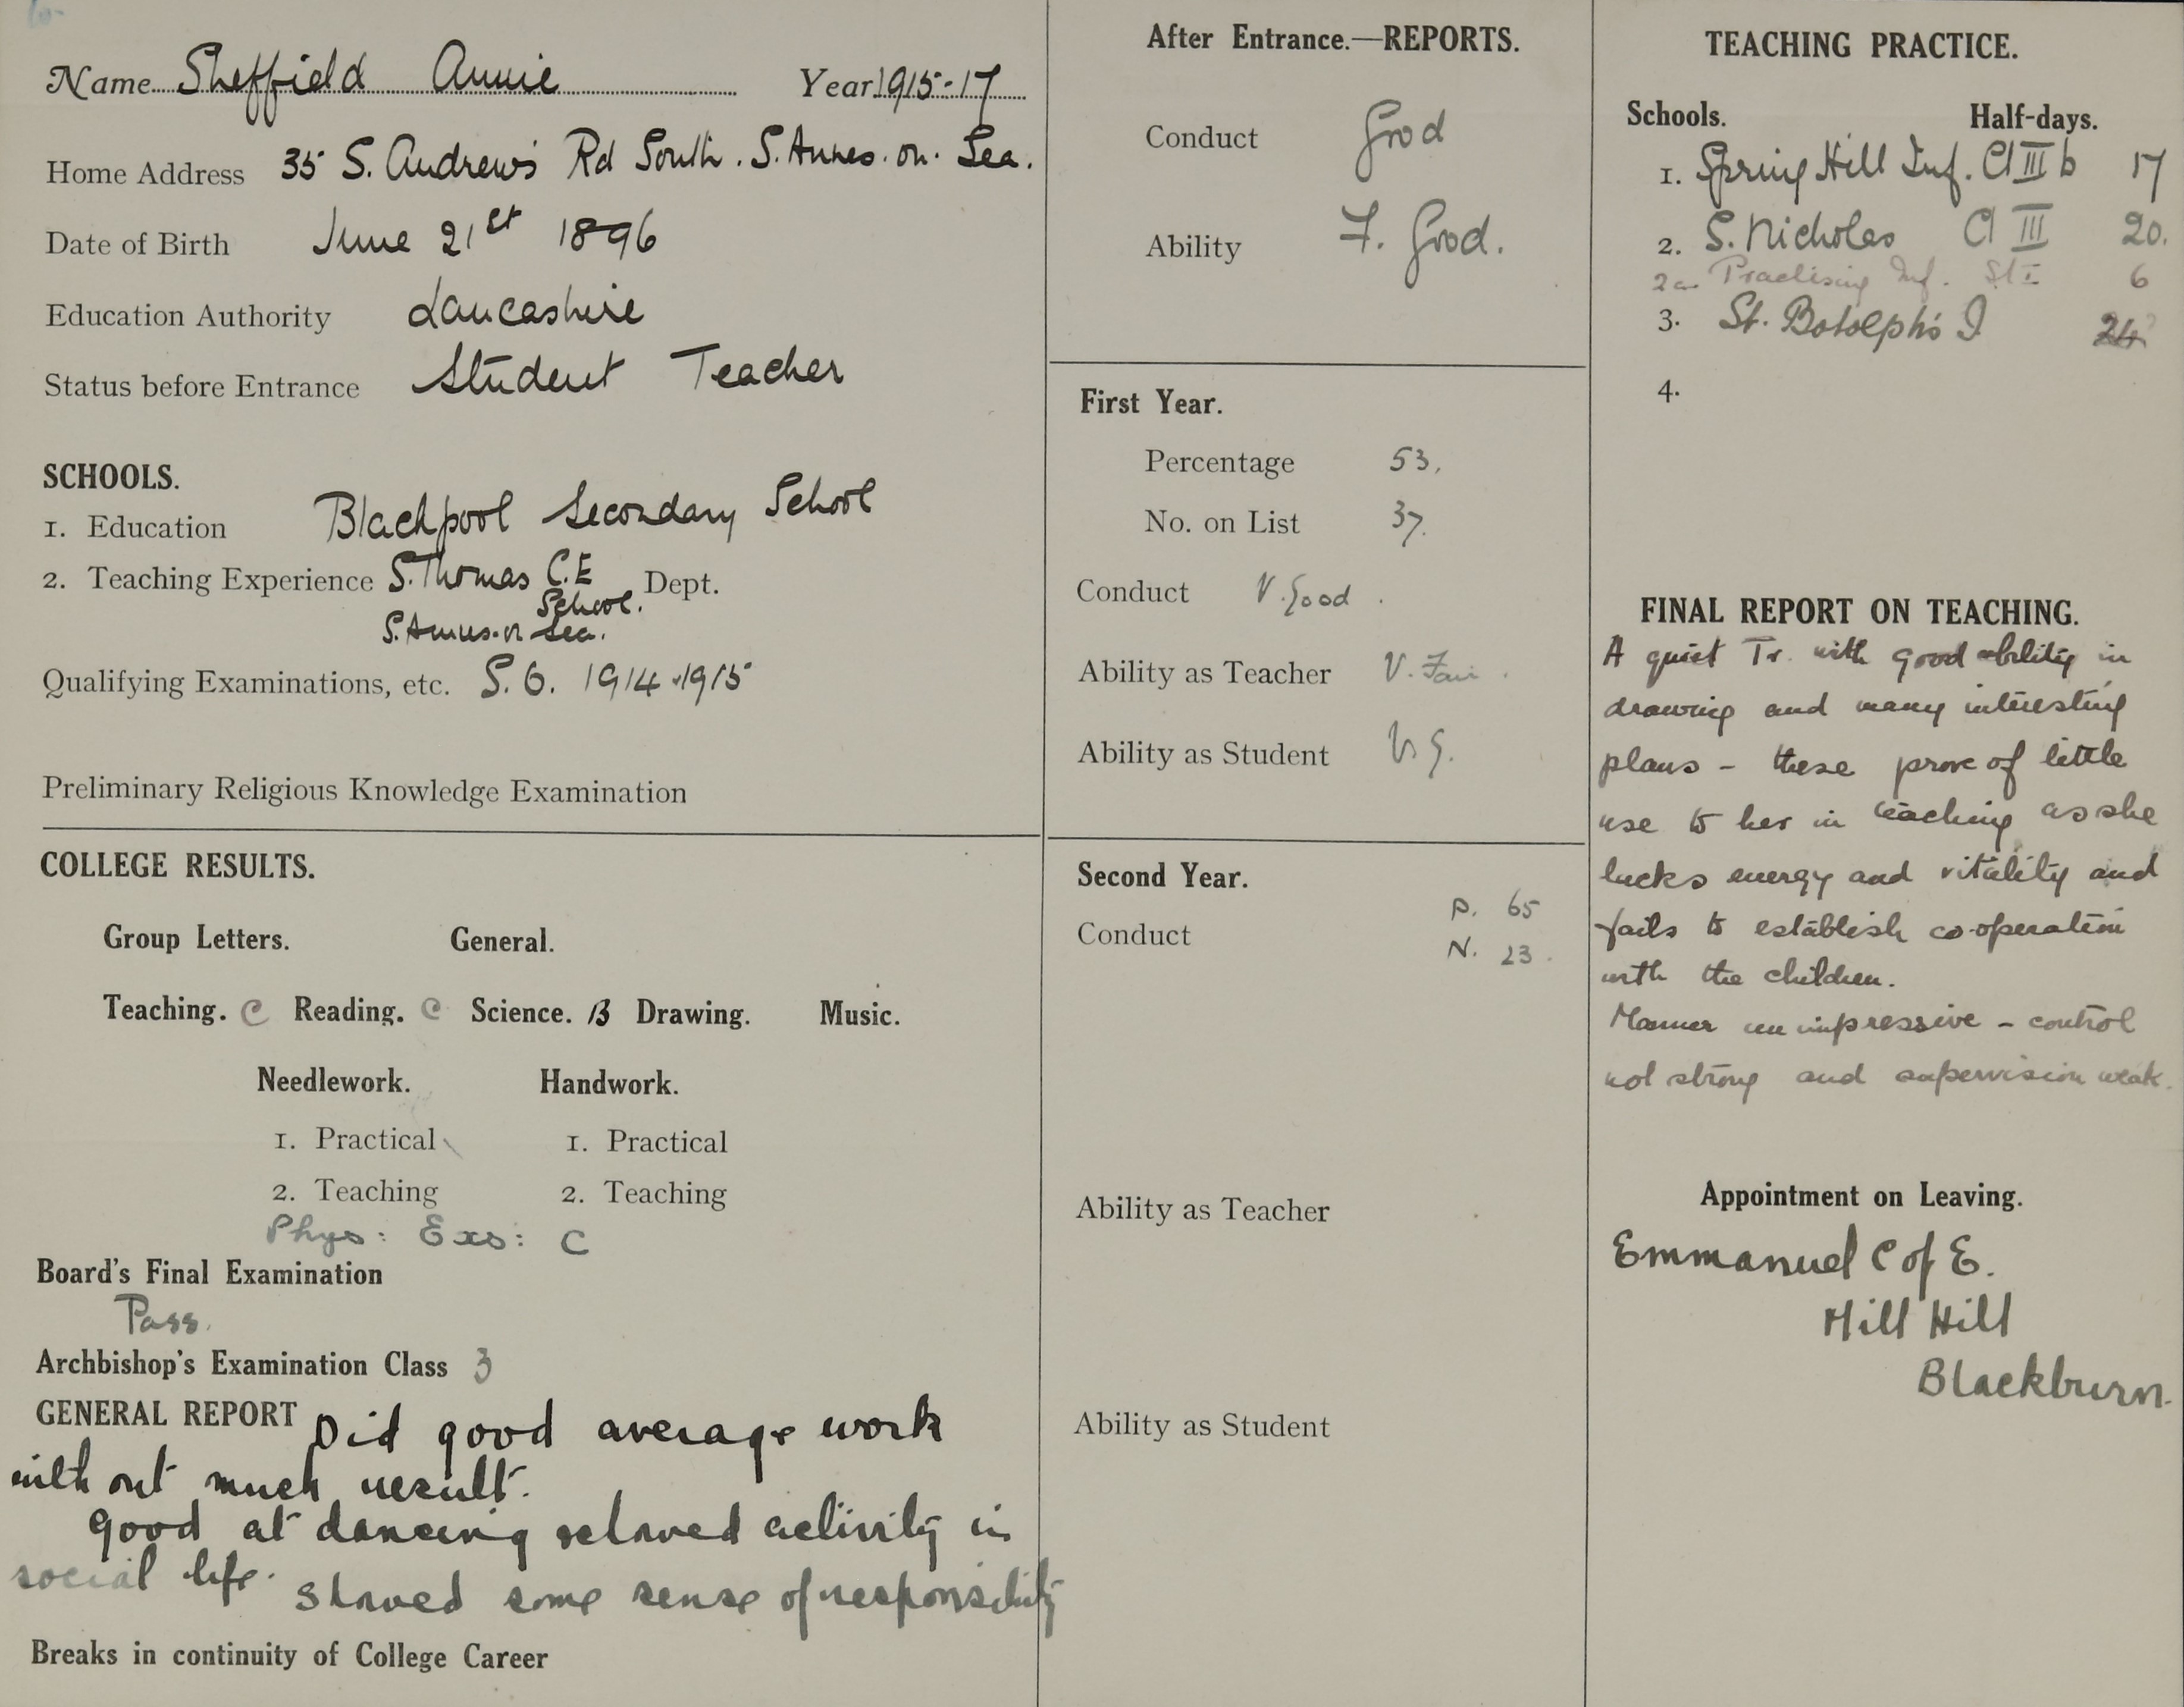 Name Sheffield Annie Year 1915-17
Home Address 35 S. Andrew's Rd South. S. Annes. on. Sea.
Date of Birth June 21st 1896
Education Authority Lancashire
Status before Entrance Student Teacher
SCHOOLS.
1. Education Blackpool Secondary School
2. Teaching Experience S. Thomas C.E School. Dept.
S. Annes. on Sea.
Qualifying Examinations, etc. S.C. 1914-1915
Preliminary Religious Knowledge Examination
COLLEGE RESULTS.
Group Letters. General.
Teaching. C Reading. C Science. B Drawing. Music.
Needlework. Handwork.
1. Practical 1. Practical
2. Teaching 2. Teaching
Phys: Exs: C
Board's Final Examination
Pass.
Archbishop's Examination Class 3
GENERAL REPORT Did good average work
without much result.
good at dancing showed activity in
social life. Showed some sense of responsibility
Breaks in continuity of College Career
After Entrance.—REPORTS.
Conduct Good
Ability F. Good.
First Year.
Percentage 53.
No. on List 37.
Conduct V. Good.
Ability as Teacher V. Fair.
Ability as Student V.G.
Second Year.
P. 65
Conduct
N. 23.
Ability as Teacher
Ability as Student
TEACHING PRACTICE.
Schools. Half-days.
1. Spring Hill Inf. Cl III b 17
2. S. Nicholas Cl III 20.
2a Practising Inf. St I 6
3. St. Botolph's I 24
4.
FINAL REPORT ON TEACHING.
A quiet Tr. with good ability in
drawing and many interesting
plans - these prove of little
use to her in teaching as she
lacks energy and vitality and
fails to establish co-operation
with the children.
Manner unimpressive - control
not strong and supervision weak.
Appointment on Leaving.
Emmanuel C of E.
Mill Hill
Blackburn.